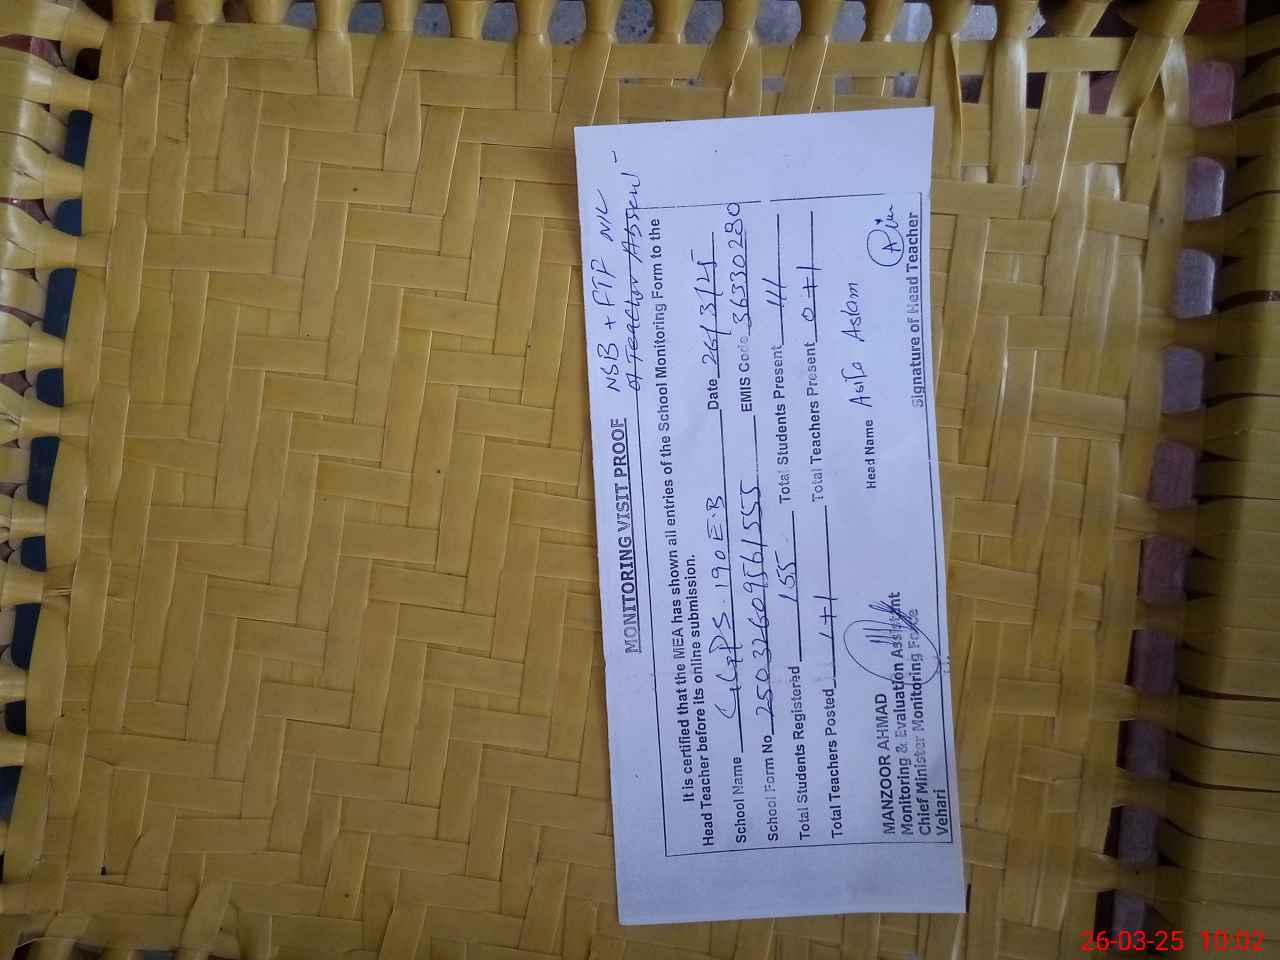 NSB + FTP NIL
MONITORING VISIT PROOF of Teacher Absent -
It is certified that the MEA has shown all entries of the School Monitoring Form to the
Head Teacher before its online submission.
School Name GGPS. 190 E.B Date 26/3/25
School Form No 25032609561555 EMIS Code 36330280
Total Students Registered 155 Total Students Present 111
Total Teachers Posted 1+1 Total Teachers Present 0+1
Head Name Asifa Aslam
MANZOOR AHMAD
Monitoring & Evaluation Assistant
Chief Minister Monitoring Force
Vehari
Signature of Head Teacher
26-03-25 10:02